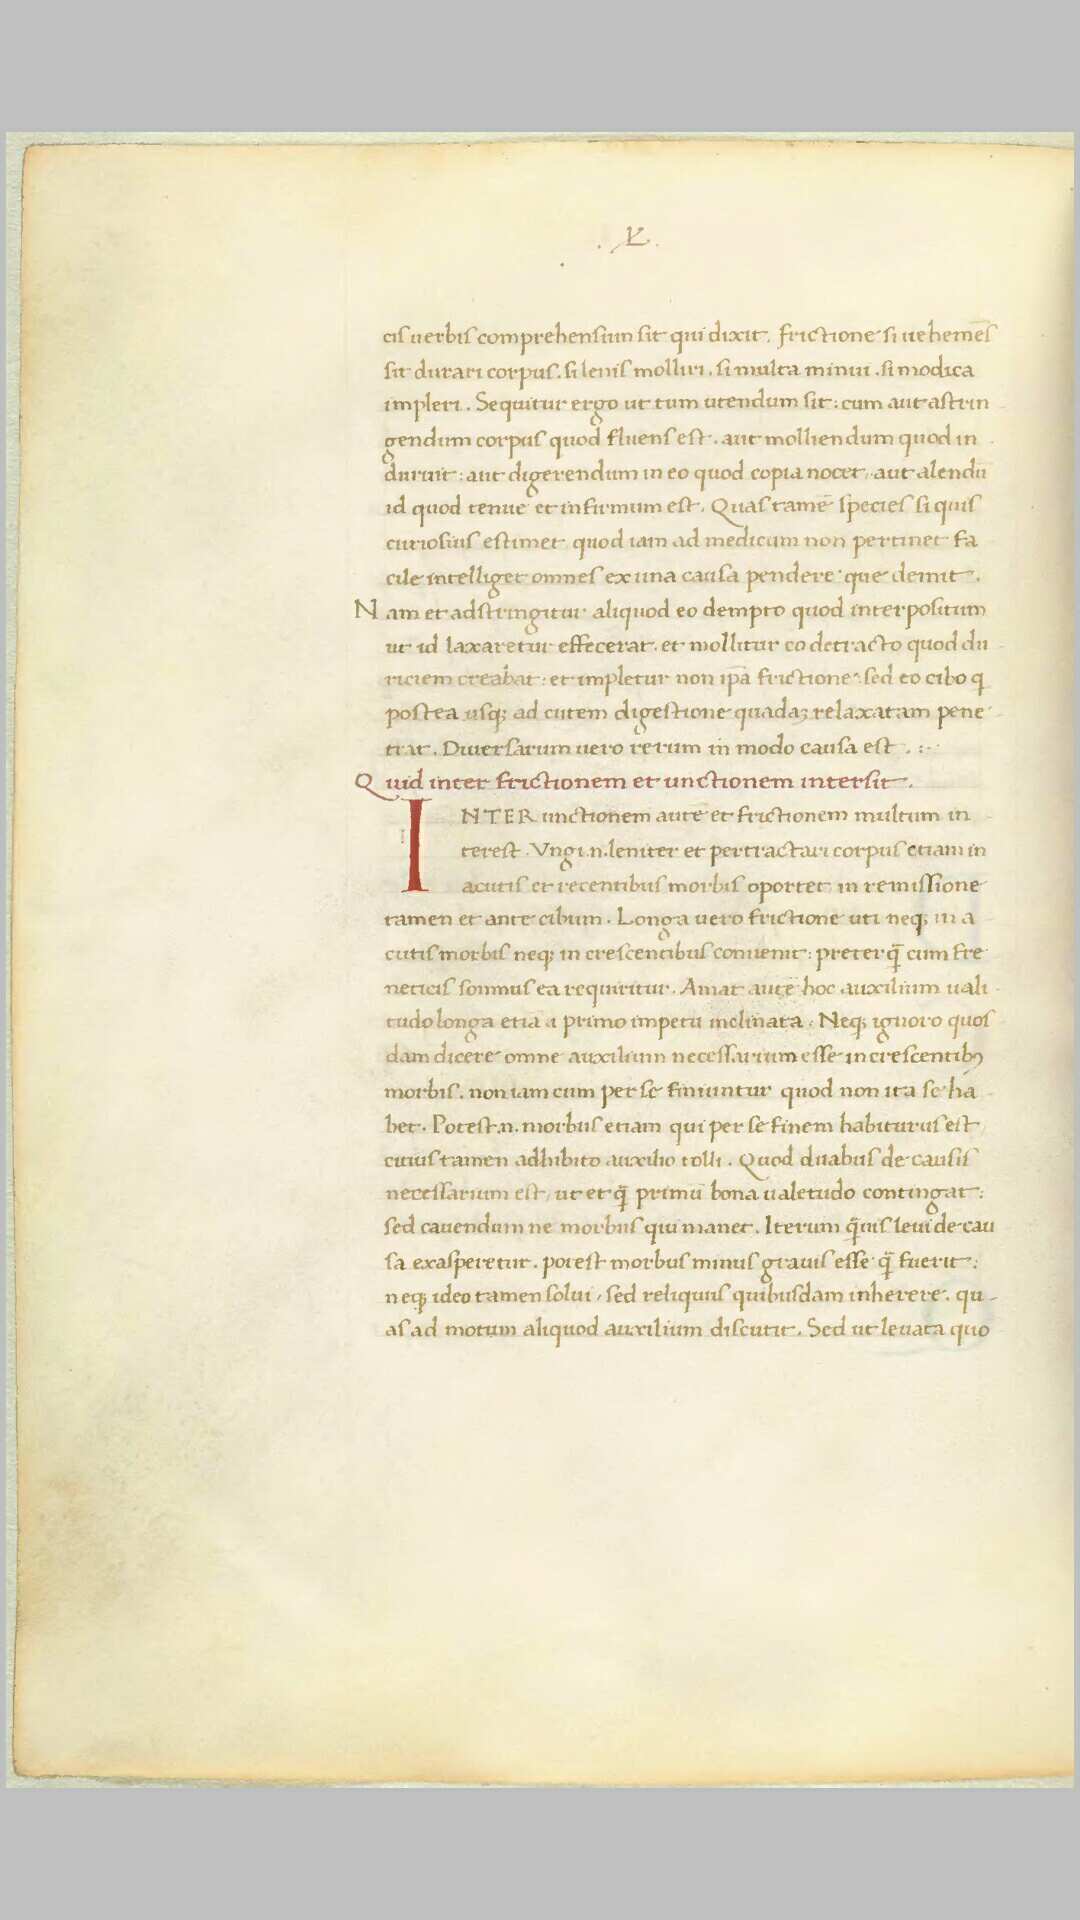 cis uerbis comprehensum sit qui dixit. frictione si uehemēs
sit durari corpus. si lenis molliri. si multa minui. si modica
impleri. Sequitur ergo ut tum utendum sit: cum aut astrin
gendum corpus quod fluens est. aut molliendum quod in
duruit: aut digerendum in eo quod copia nocet. aut alendū
id quod tenue et infirmum est. Quas tamē species si quis
curiosius estimet quod iam ad medicum non pertinet fa
cile intelliget omnes ex una causa pendere que demit.
Nam et adstringitur aliquod eo dempto quod interpositum
ut id laxaretur effecerat. et mollitur eo detracto quod du
riciem creabat: et impletur non ipā frictione: sed eo cibo q
postea usq; ad cutem digestione quadaz relaxatam pene
trat. Diuersarum uero rerum in modo causa est .:-
Quid inter frictionem et unctionem intersit.
INTER unctionem autē et frictionem multum in
terest. Vngi .n. leniter et pertractari corpus etiam in
acutis et recentibus morbis oportet in remissione
tamen et ante cibum. Longa uero frictione uti neq; in a
cutis morbis neq; in crescentibus conuenit: preterq̄ cum fre
neticis somnus ea requiritur. Amat autē hoc auxilium uali
tudo longa etiā a primo impetu inclinata. Neq; ignoro quos
dam dicere omne auxilium necessarium esse in crescentibꝰ
morbis. non iam cum per se finiuntur quod non ita se ha
bet. Potest .n. morbus etiam qui per se finem habiturus est
cuius tamen adhibito auxilio tolli. Quod duabus de causis
necessarium est, ut et q̄ primū bona ualetudo contingat:
sed cauendum ne morbus qui manet. Iterum q̄uis leui de cau
sa exasperetur. potest morbus minus grauis esse q̄ fuerit:
neq; ideo tamen solui, sed reliquiis quibusdam inherere. qu-
as ad motum aliquod auxilium discutit. Sed ut leuata quo